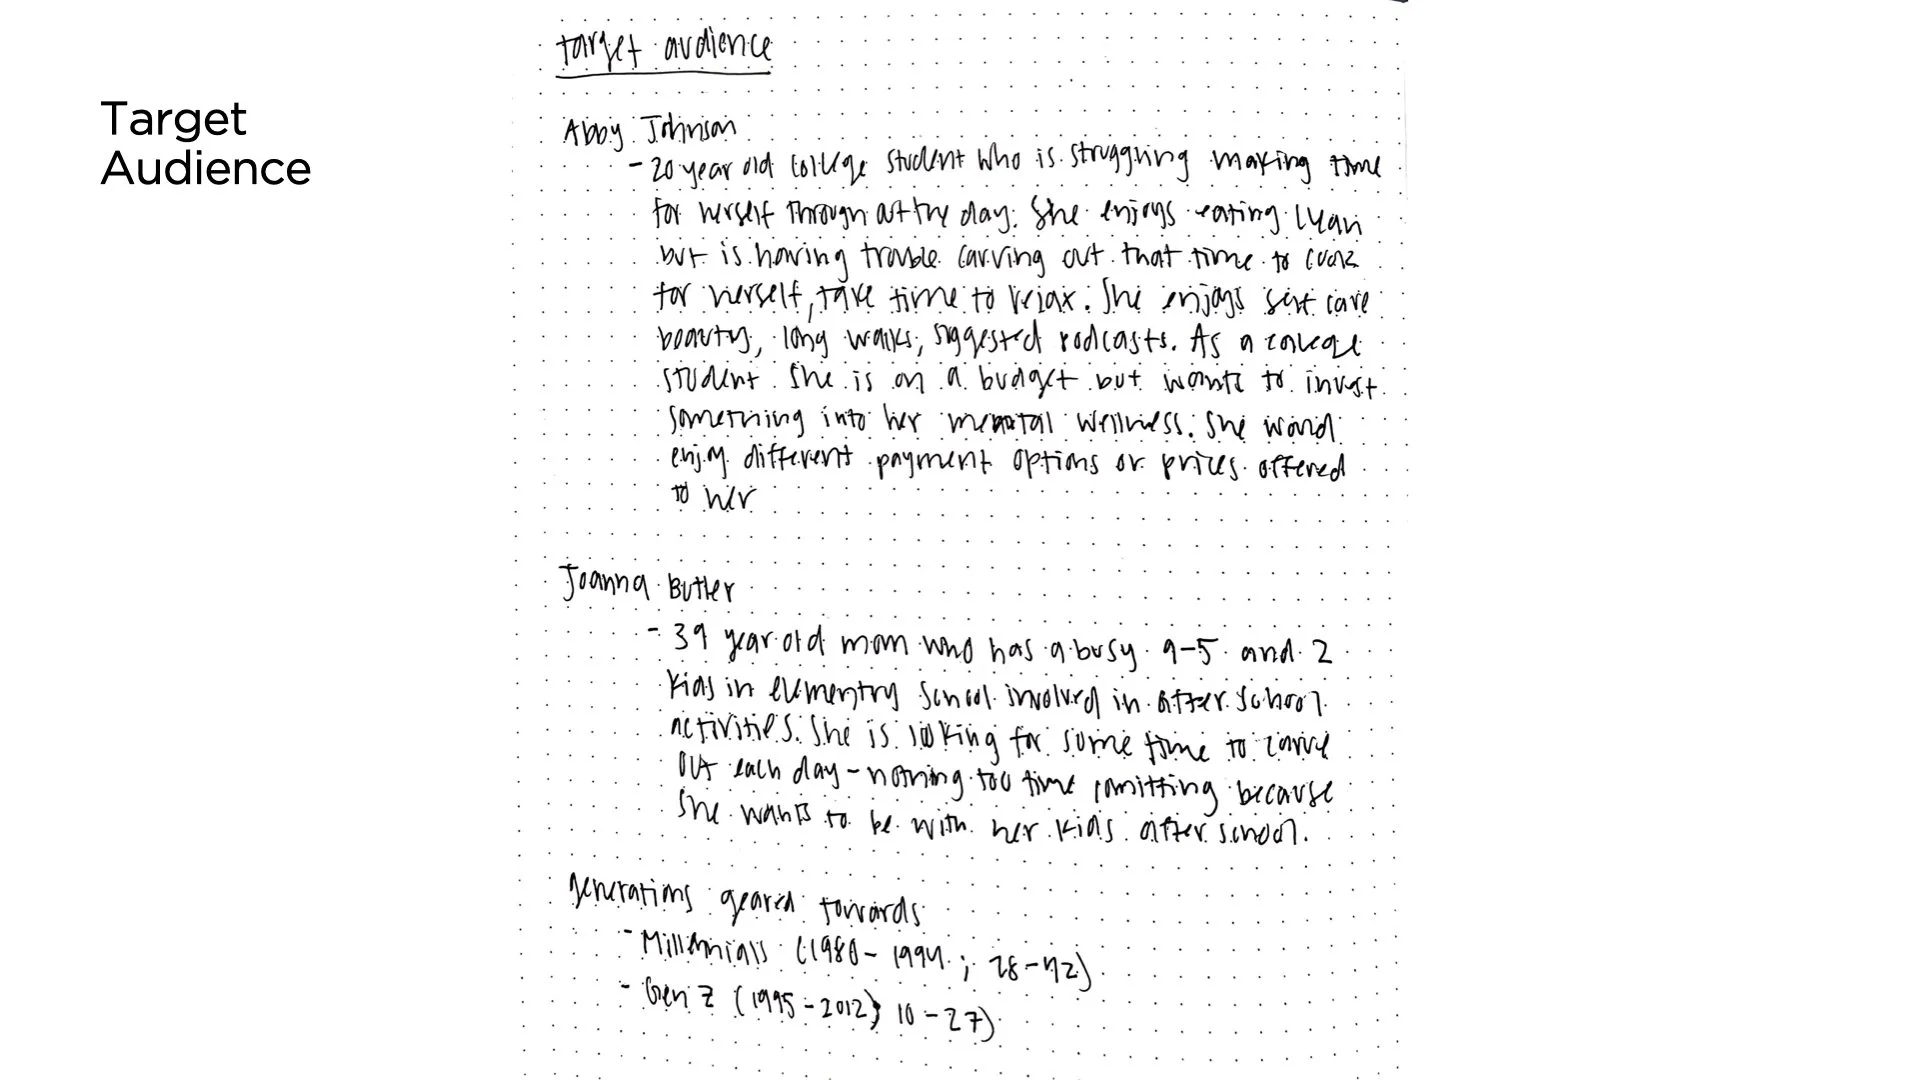 Target
Audience
target audience
Abby Johnson
- 20 year old college student who is struggling making time
for herself through out the day. She enjoys eating clean
but is having trouble carving out that time to cook
for herself, take time to relax. She enjoys self care
beauty, long walks, suggested podcasts. As a college
student she is on a budget but wants to invest
something into her mental wellness. She would
enjoy different payment options or prices offered
to her
Joanna Butler
- 39 year old mom who has a busy 9-5 and 2
kids in elementry school involved in after school
activities. She is looking for some time to carve
out each day - nothing too time comitting because
she wants to be with her kids after school.
generations geared towards
- Millennials (1980- 1994 ; 28-42)
- Gen Z (1995-2012; 10-27)